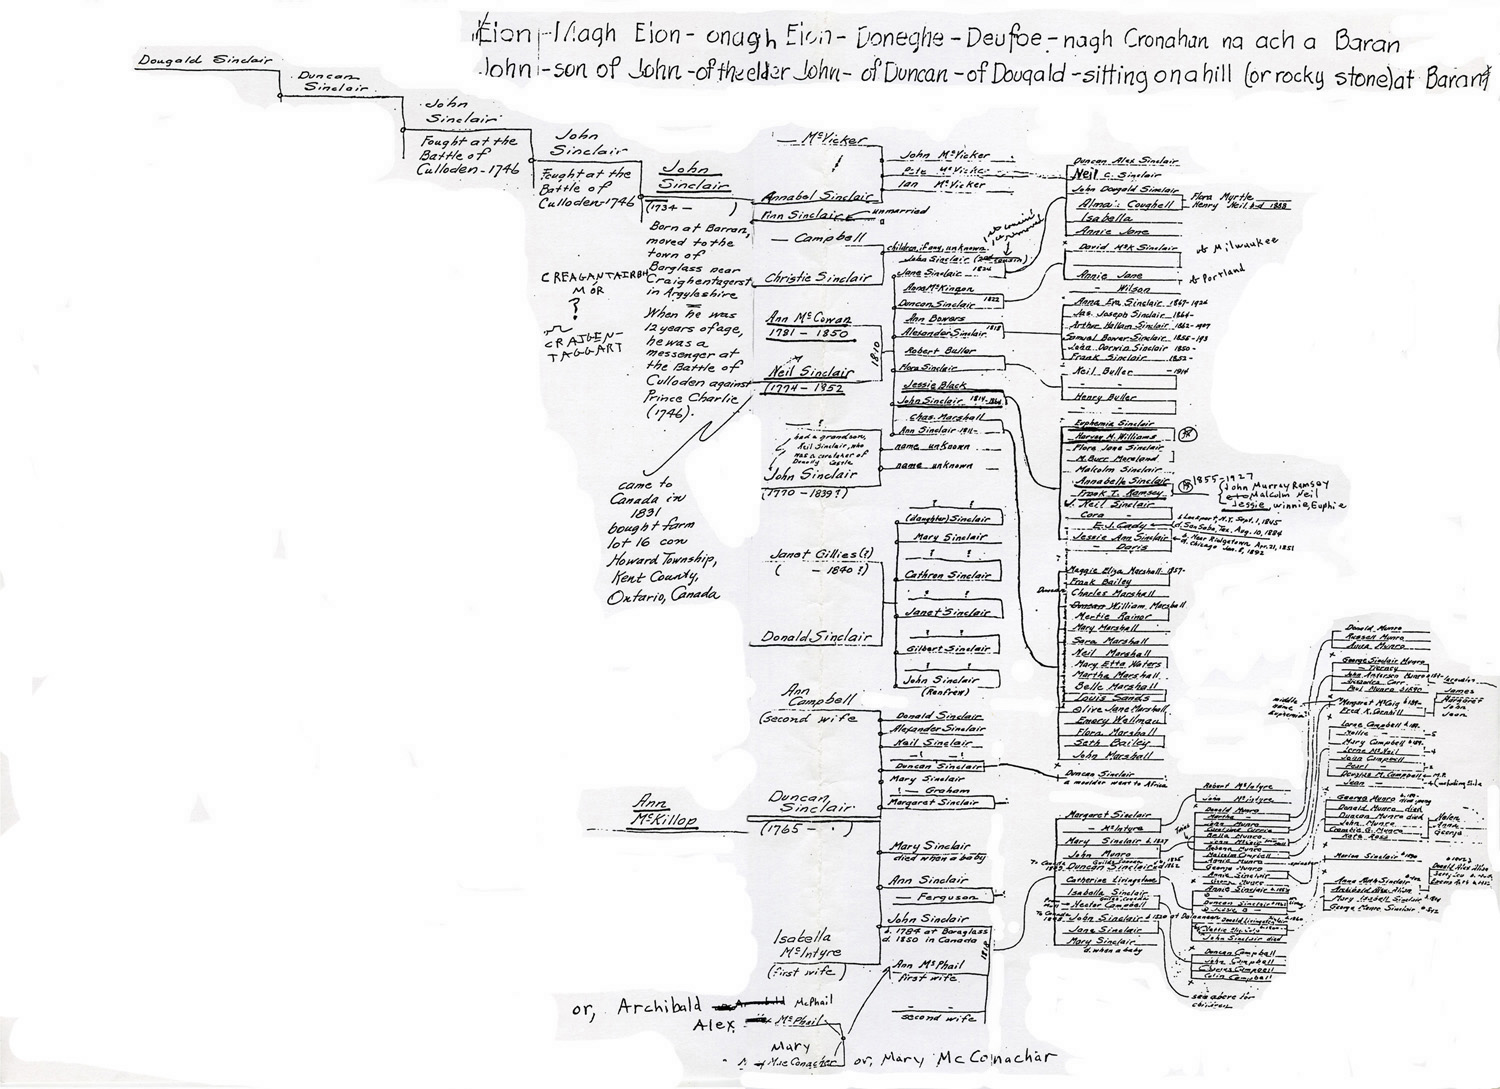 Eion - Magh Eion - onagh Eion - Doneghe - Deufoe - nagh Cronahan na ach a Baran
John - son of John - of the elder John - of Duncan - of Dougald - sitting on a hill (or rocky stone) at Baran
Dougald Sinclair
Duncan
Sinclair
John
Sinclair
Fought at the
Battle of
Culloden - 1746
John
Sinclair
Fought at the
Battle of
Culloden - 1746
John
Sinclair
(1734 - )
Born at Barran,
moved to the
town of
Barglass near
Craighentagerst
in Argyleshire
When he was
12 years of age,
he was a
messenger at
the Battle of
Culloden against
Prince Charlie
(1746).
CREAGANTAIRBH
MÓR
?
CRAIGEN-
TAGGART
came to
Canada in
1831
bought farm
lot 16 con
Howard Township,
Kent County,
Ontario, Canada
Ann
McKillop
— McVicker
Annabel Sinclair
Finn Sinclair unmarried
— Campbell
Christie Sinclair
Ann McCowan
1781 - 1850
Neil Sinclair
(1774 - 1852
1810
had a grandson,
Neil Sinclair, who
was a caretaker of
Castle
John Sinclair
(1770 - 1839?)
Janet Gillies(?)
( - 1840?)
Donald Sinclair
Ann
Campbell
(second wife)
Duncan
Sinclair
(1765 - )
Isabella
McIntyre
(first wife)
or, Archibald McPhail
Alex. McPhail
Mary
MacConacher or, Mary McConachar
John McVicker
Pete McVicker
Ian McVicker
children, if any, unknown
John Sinclair (2nd cousin)
Jane Sinclair 1826
Anna McKinnon
Duncan Sinclair 1822
Ann Bowers
Alexander Sinclair 1818
Robert Buller
Mora Sinclair
Jessie Black
John Sinclair 1814-1864
Chas. Marshall
Ann Sinclair 1811-
name unknown
name unknown
(daughter) Sinclair
Mary Sinclair
? ?
Cathron Sinclair
? ?
Janet Sinclair
? ?
Gilbert Sinclair
? ?
John Sinclair
(Renfrew)
Donald Sinclair
Alexander Sinclair
Neil Sinclair
Duncan Sinclair
Mary Sinclair
— Graham
Margaret Sinclair
Mary Sinclair
died when a baby
Ann Sinclair
— Ferguson
John Sinclair
b. 1784 at Baraglass
d. 1850 in Canada
1818
Ann McPhail
first wife
second wife
Duncan Alex Sinclair
Neil C. Sinclair
John Dougald Sinclair
Alma: Coughell
Flora Myrtle
Henry Neil
Isabella
Annie Jane
David McK Sinclair
Milwaukee
Annie Jane
Portland
— Wilson
Anna Eva Sinclair 1867-1926
Jas. Joseph Sinclair 1864-
Arthur Hallam Sinclair 1862-1907
Samuel Bower Sinclair 1855-193
John Darwin Sinclair 1850-
Frank Sinclair 1852-
Neil Buller - 1914
Henry Buller
Euphemia Sinclair
Harvey M. Williams
Flora Jane Sinclair
M. Burr Moreland
Malcolm Sinclair
Annabella Sinclair
Frank I. Ramsey
1855-1927
John Murray Ramsey
Malcolm Neil
Jessie, Winnie, Euphie
J. Neil Sinclair
Cora —
E.J. Cady
b. Lockport, N.Y. Sept. 1, 1845
d. San Saba, Tex. Aug. 10, 1884
Jessie Ann Sinclair
b. Near Ridgetown Apr. 21, 1851
d. Chicago Jan. 8, 1892
— Davis
Maggie Eliza Marshall 1857-
Frank Bailey
Charles Marshall
Duncan William Marshall
Mertie Rainor
Mary Marshall
Sara Marshall
Neil Marshall
Mary Etta Waters
Martha Marshall
Belle Marshall
Louis Sands
Olive Jane Marshall
Emery Wellman
Flora Marshall
Seth Bailey
John Marshall
Duncan Sinclair
a moulder went to Africa
Margaret Sinclair
— McIntyre
Mary Sinclair
John Munro
Duncan Sinclair
Catherine Livingstone
Isabella Sinclair
Hector Campbell
John Sinclair
Jane Sinclair
Mary Sinclair
d. when a baby
Robert McIntyre
John McIntyre
Donald Munro
Bella Munro
Malcolm Campbell
Annie Munro
George Munro
Annie Sinclair
Duncan Sinclair
John Sinclair died
Duncan Campbell
John Campbell
Charles Campbell
Colin Campbell
see above for
children
Donald Munro
Russell Munro
Anna Munro
George Sinclair Munro
— Tierney
John Anderson Munro
Paul Munro
middle
name
Euphemia?
Margaret McCaig
Fred K. Cornhill
James
Margaret
John
Jean
Lorne Campbell
Nellie —
Mary Campbell
Lorne McNeil
John Campbell
Pearl —
Douglas M. Campbell M.P.
Jean —
George Munro
Donald Munro died
Duncan Munro died
John Munro
Campbell G. Munro
Ruth Ross
Helen
Anne
George
Marion Sinclair
Anna Ruth Sinclair
Archibald Alex Alison
Mary Isabell Sinclair
George Munro Sinclair